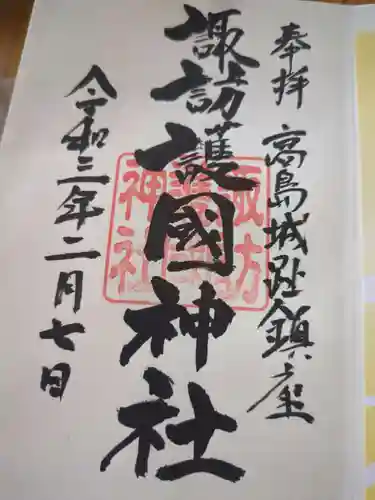 奉拝
高島城趾鎮座
諏訪護國神社
諏訪護國神社
令和三年二月七日